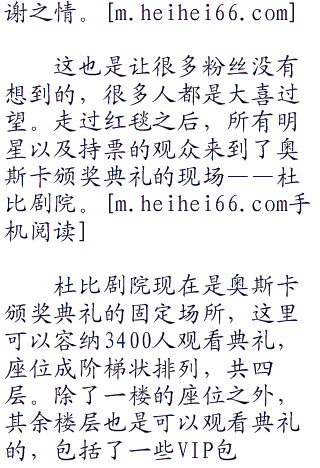 谢之情。[m.heihei66.com]
这也是让很多粉丝没有
想到的，很多人都是大喜过
望。走过红毯之后，所有明
星以及持票的观众来到了奥
斯卡颁奖典礼的现场——杜
比剧院。[m.heihei66.com手
机阅读]
杜比剧院现在是奥斯卡
颁奖典礼的固定场所，这里
可以容纳3400人观看典礼，
座位成阶梯状排列，共四
层。除了一楼的座位之外，
其余楼层也是可以观看典礼
的，包括了一些VIP包